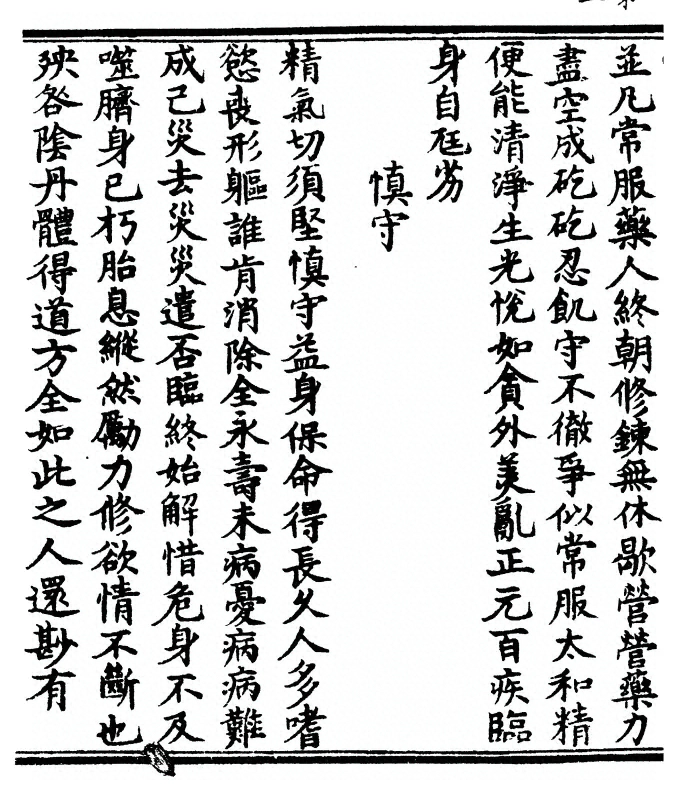 並凡常服藥人終朝修鍊無休歇營營藥力
盡空成矻矻忍飢守不徹爭似常服太和精
便能清淨生光悅如貪外美亂正元百疾臨
身自尫劣
慎守
精氣切須堅慎守益身保命得長久人多嗜
慾喪形軀誰肯消除全永壽未病憂病病難
成己災去災災遣否臨終始解惜危身不及
噬臍身已朽胎息縱然勵力修欲情不斷也
殃咎陰丹體得道方全如此之人還尠有